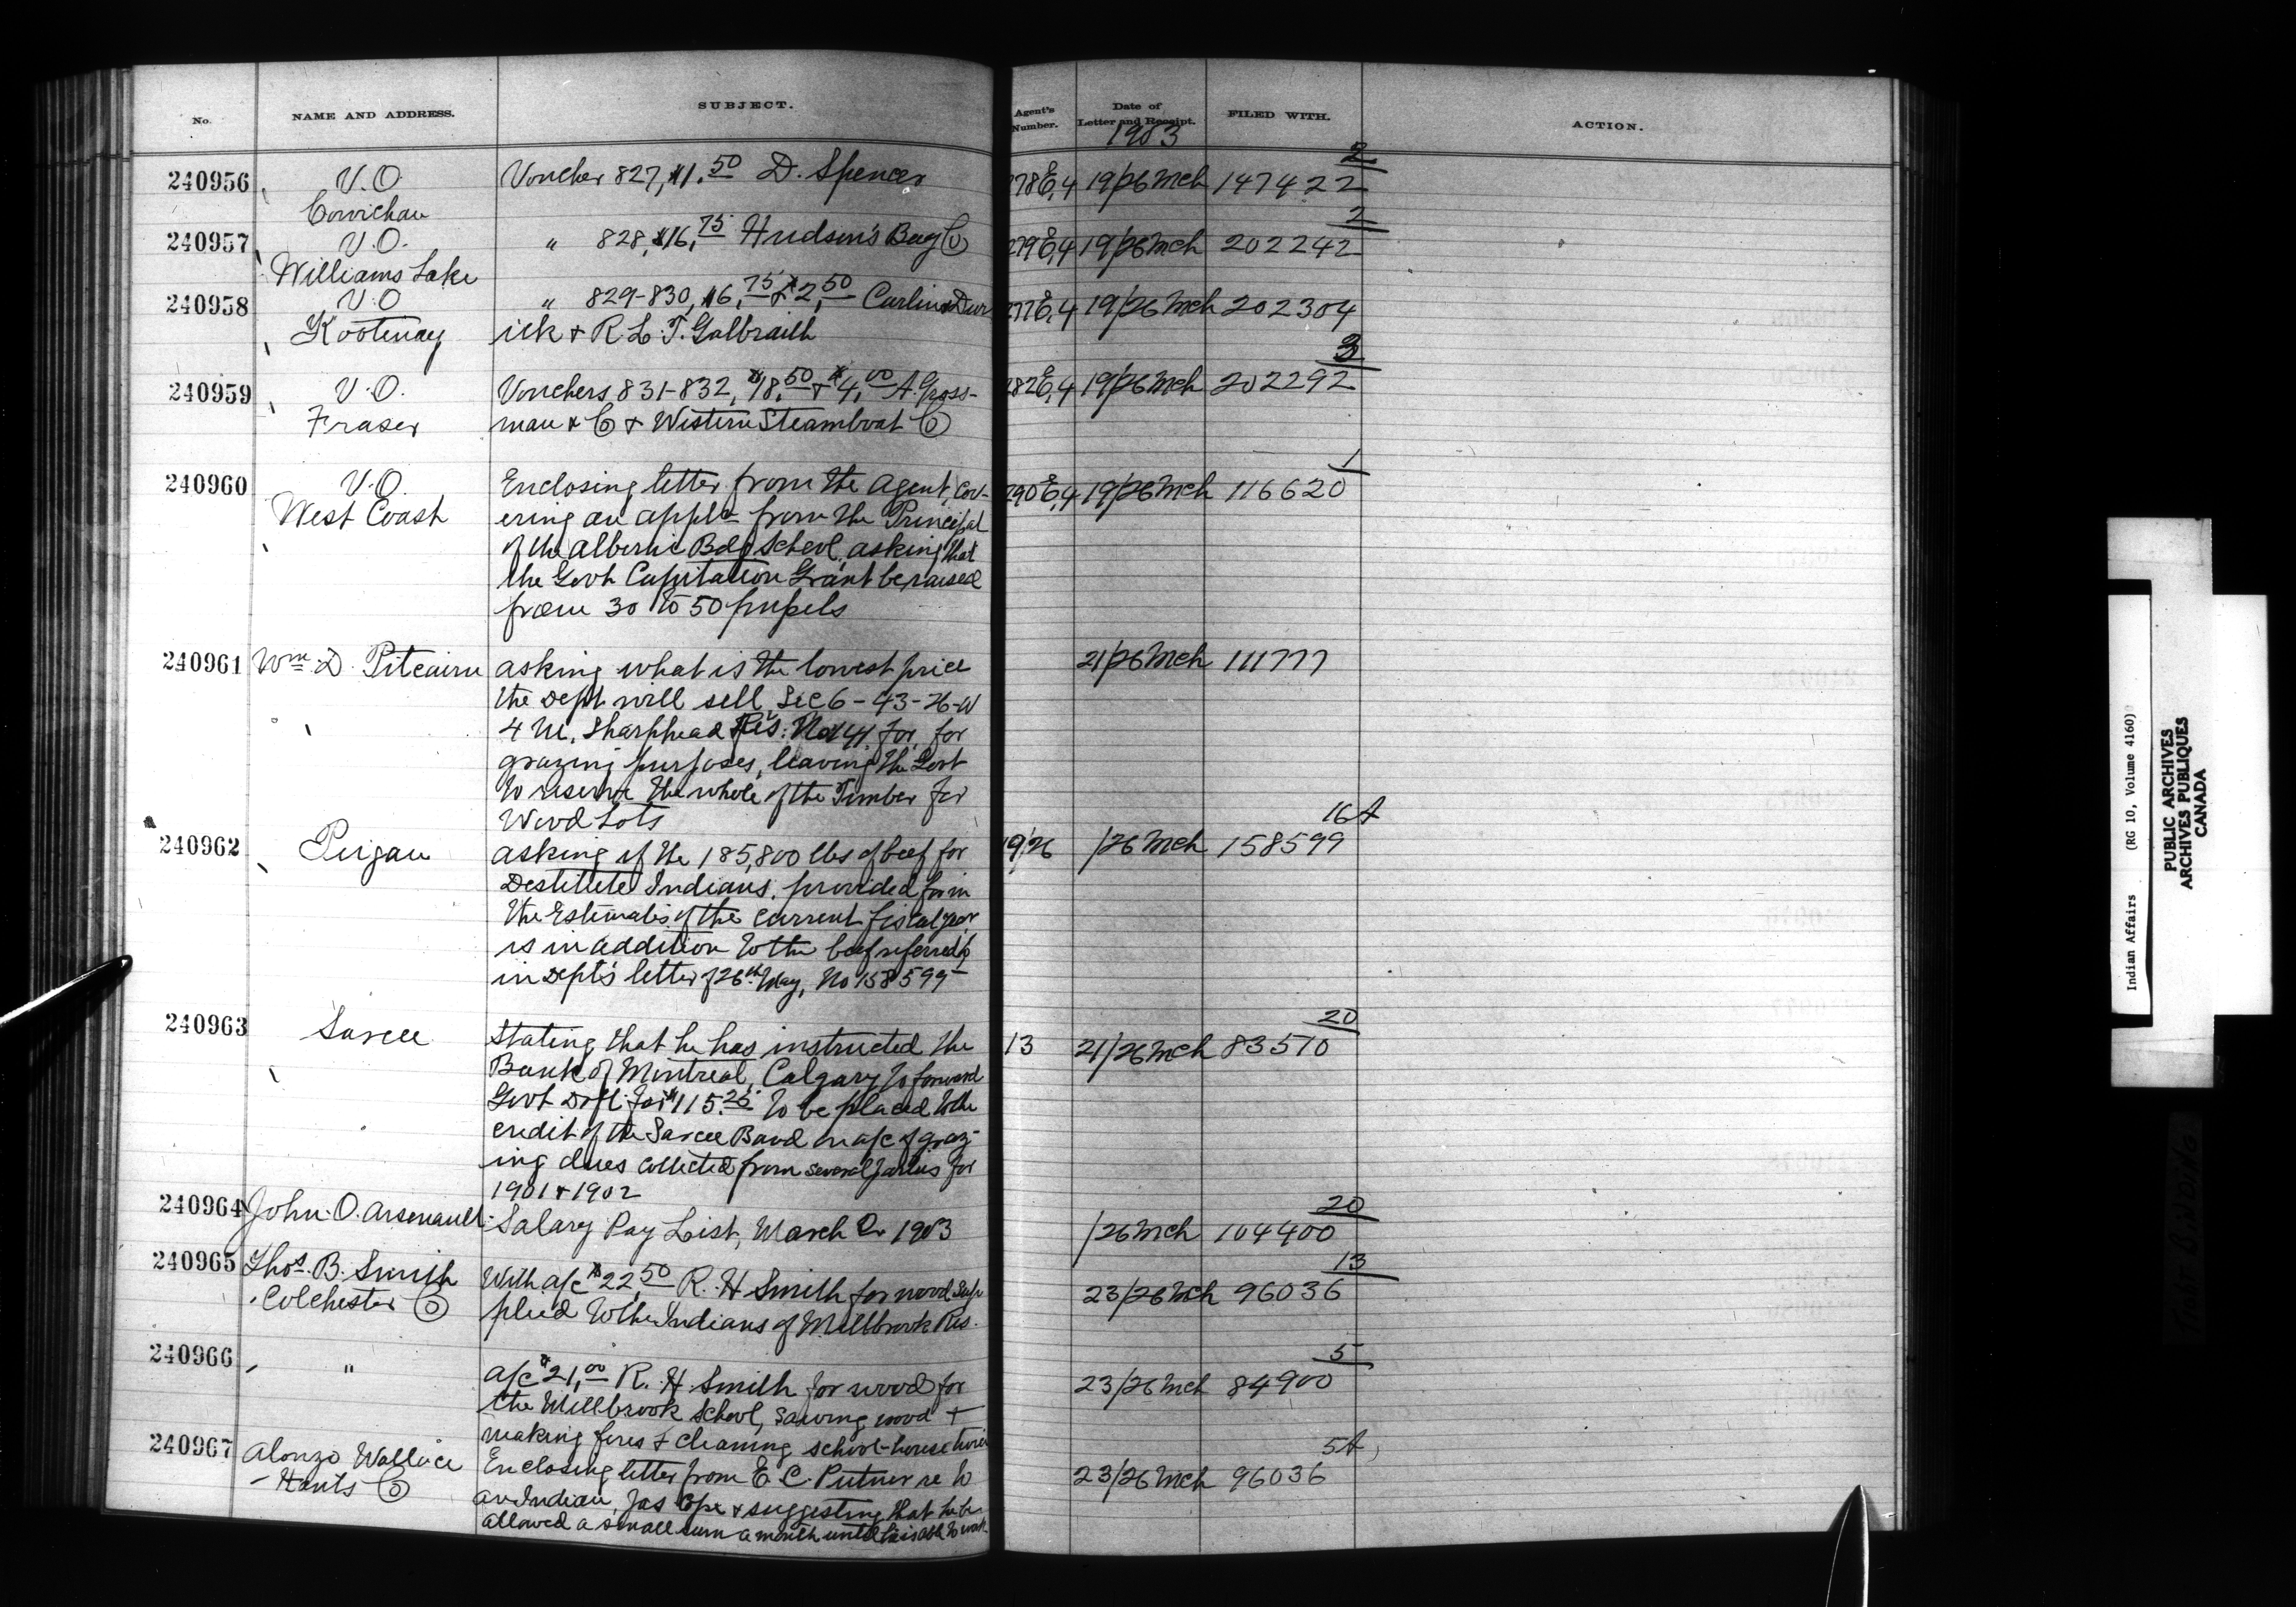 No. NAME AND ADDRESS. SUBJECT. Agent's Number. Date of Letter and Receipt. FILED WITH. ACTION.
1903
2
240956 V.O. Voucher 827, $1.50 D. Spencer 278 E,4 19/26 Mch 147422
Cowichan
2
240957 V.O. " 828, $16.75 Hudson's Bay Co 279 E,4 19/26 Mch 202242
Williams Lake
240958 V.O " 829-830, $6.75 & $2.50 Carlin & Dur 277 E,4 19/26 Mch 202304
Kootenay ick & R.L.T. Galbraith
3
240959 V.O. Vouchers 831-832, $18.50 & $4.00 A. Gross- 282 E,4 19/26 Mch 202292
Fraser man & Co & Western Steamboat Co
1
240960 V.O. Enclosing letter from the Agent, Cov- 290 E,4 19/26 Mch 116620
West Coast ering an appln from the Principal
of the Alberni Bdg School, asking that
the Govt Capitation Grant be raised
from 30 to 50 pupils
240961 Wm. D. Pitcairn asking what is the lowest price 21/26 Mch 111777
the Dept will sell Sec 6 - 43 - 26 - W
4 M. Sharphead Res: No 141 for, for
grazing purposes, leaving the Govt
to reserve the whole of the Timber for
Wood Lots
16 A
240962 Peigan asking if the 185,800 lbs of beef for 19/26 /26 Mch 158599
Destitute Indians, provided for in
the Estimates of the current fiscal year
is in addition to the beef referred to
in Dept's letter of 26th May, No 158599
20
240963 Sarcee Stating that he has instructed the 13 21/26 Mch 83570
Bank of Montreal, Calgary to forward
Govt Dft for $115.25 to be placed to the
credit of the Sarcee Band on a/c of graz-
ing dues collected from several parties for
1901 & 1902
20
240964 John. O. Arsenault Salary Pay List, March Qr 1903 /26 Mch 104400
13
240965 Thos. B. Smith With a/c $22.50 R. H Smith for wood sup 23/26 Mch 96036
Colchester Co plied to the Indians of Millbrook Res.
5
240966 " a/c $21.00 R. H Smith for wood for 23/26 Mch 84900
the Millbrook School, sawing wood &
making fires & cleaning school-house twice
5 A
240967 Alonzo Wallace Enclosing letter from E. C. Putner re to 23/26 Mch 96036
Hants Co an Indian, Jas Cope & suggesting that he be
allowed a small sum a month until he is able to work
Indian Affairs (RG 10, Volume 4160)
PUBLIC ARCHIVES
ARCHIVES PUBLIQUES
CANADA
TIGHT BINDING